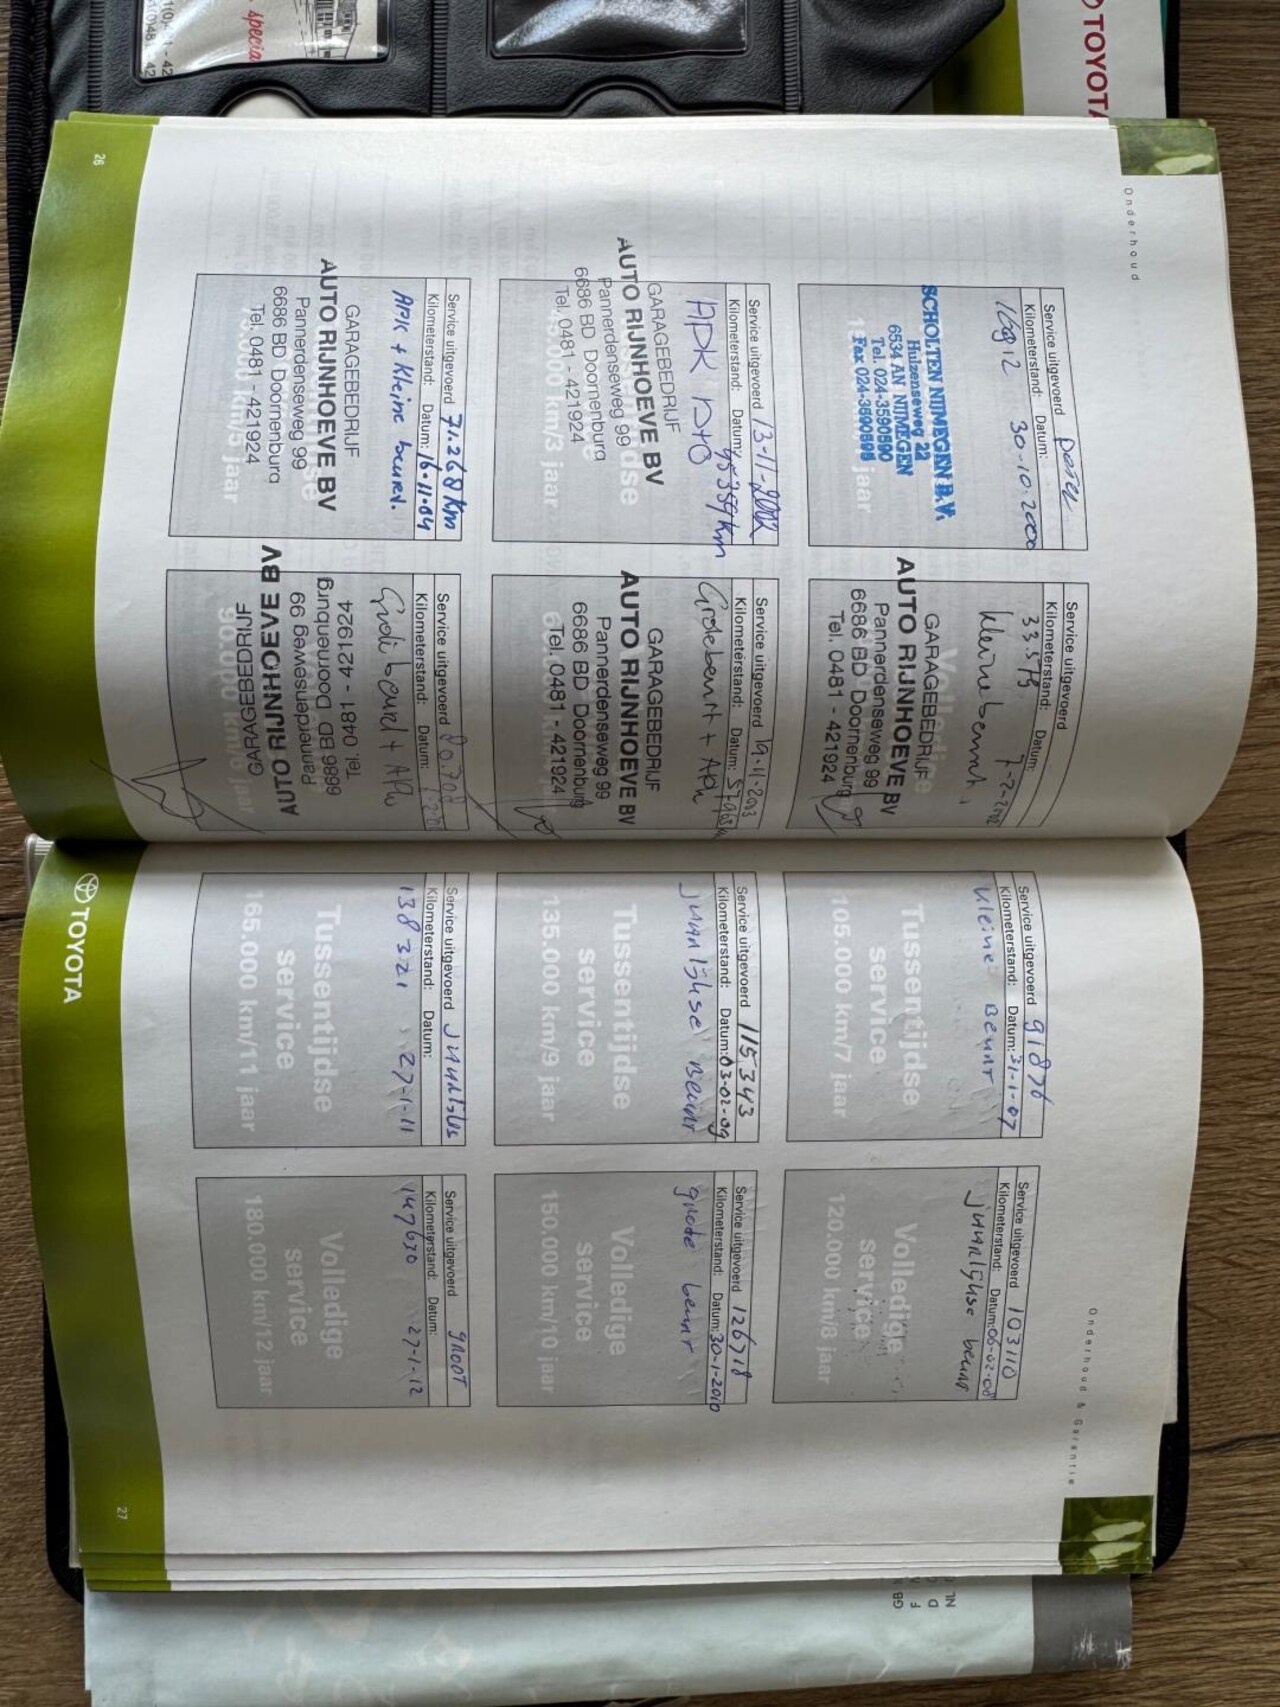 TOYOTA
specia
Onderhoud
Service uitgevoerd
Kilometerstand: Datum:
30-10-2000
SCHOLTEN NIJMEGEN B.V.
Hulzenseweg 22
6534 AN NIJMEGEN
Tel. 024-3590590
Service uitgevoerd
Kilometerstand: Datum:
7-2-2002
Kleine beurt.
Volledige
GARAGEBEDRIJF
AUTO RIJNHOEVE BV
Pannerdenseweg 99
6686 BD Doornenburg
Tel. 0481 - 421924
Service uitgevoerd 13-11-2002
Kilometerstand: Datum
APK
GARAGEBEDRIJF
AUTO RIJNHOEVE BV
Pannerdenseweg 99
6686 BD Doornenburg
Tel. 0481 - 421924
Service uitgevoerd
Kilometerstand: Datum:
GARAGEBEDRIJF
AUTO RIJNHOEVE BV
Pannerdenseweg 99
6686 BD Doornenburg
Tel. 0481 - 421924
Service uitgevoerd 71.268 Km
Kilometerstand: Datum: 16-11-04
APK + Kleine beurt.
GARAGEBEDRIJF
AUTO RIJNHOEVE BV
Pannerdenseweg 99
6686 BD Doornenburg
Tel. 0481 - 421924
Service uitgevoerd
Kilometerstand: Datum:
GARAGEBEDRIJF
AUTO RIJNHOEVE BV
Pannerdenseweg 99
6686 BD Doornenburg
Tel. 0481 - 421924
26
Onderhoud & Garantie
Service uitgevoerd 91876
Kilometerstand: Datum: 31-1-07
Kleine Beurt
Tussentijdse
service
105.000 km/7 jaar
Service uitgevoerd 103110
Kilometerstand: Datum: 06-02-08
Jaarlijkse beurt
Volledige
service
120.000 km/8 jaar
Service uitgevoerd 115343
Kilometerstand: Datum: 03-02-09
Jaarlijkse Beurt
Tussentijdse
service
135.000 km/9 jaar
Service uitgevoerd 126718
Kilometerstand: Datum: 30-1-2010
grote beurt
Volledige
service
150.000 km/10 jaar
Service uitgevoerd
Kilometerstand: Datum:
138321 27-1-11
Tussentijdse
service
165.000 km/11 jaar
Service uitgevoerd groot
Kilometerstand: Datum:
147630 27-1-12
Volledige
service
180.000 km/12 jaar
TOYOTA
27
NL
D
F
GB